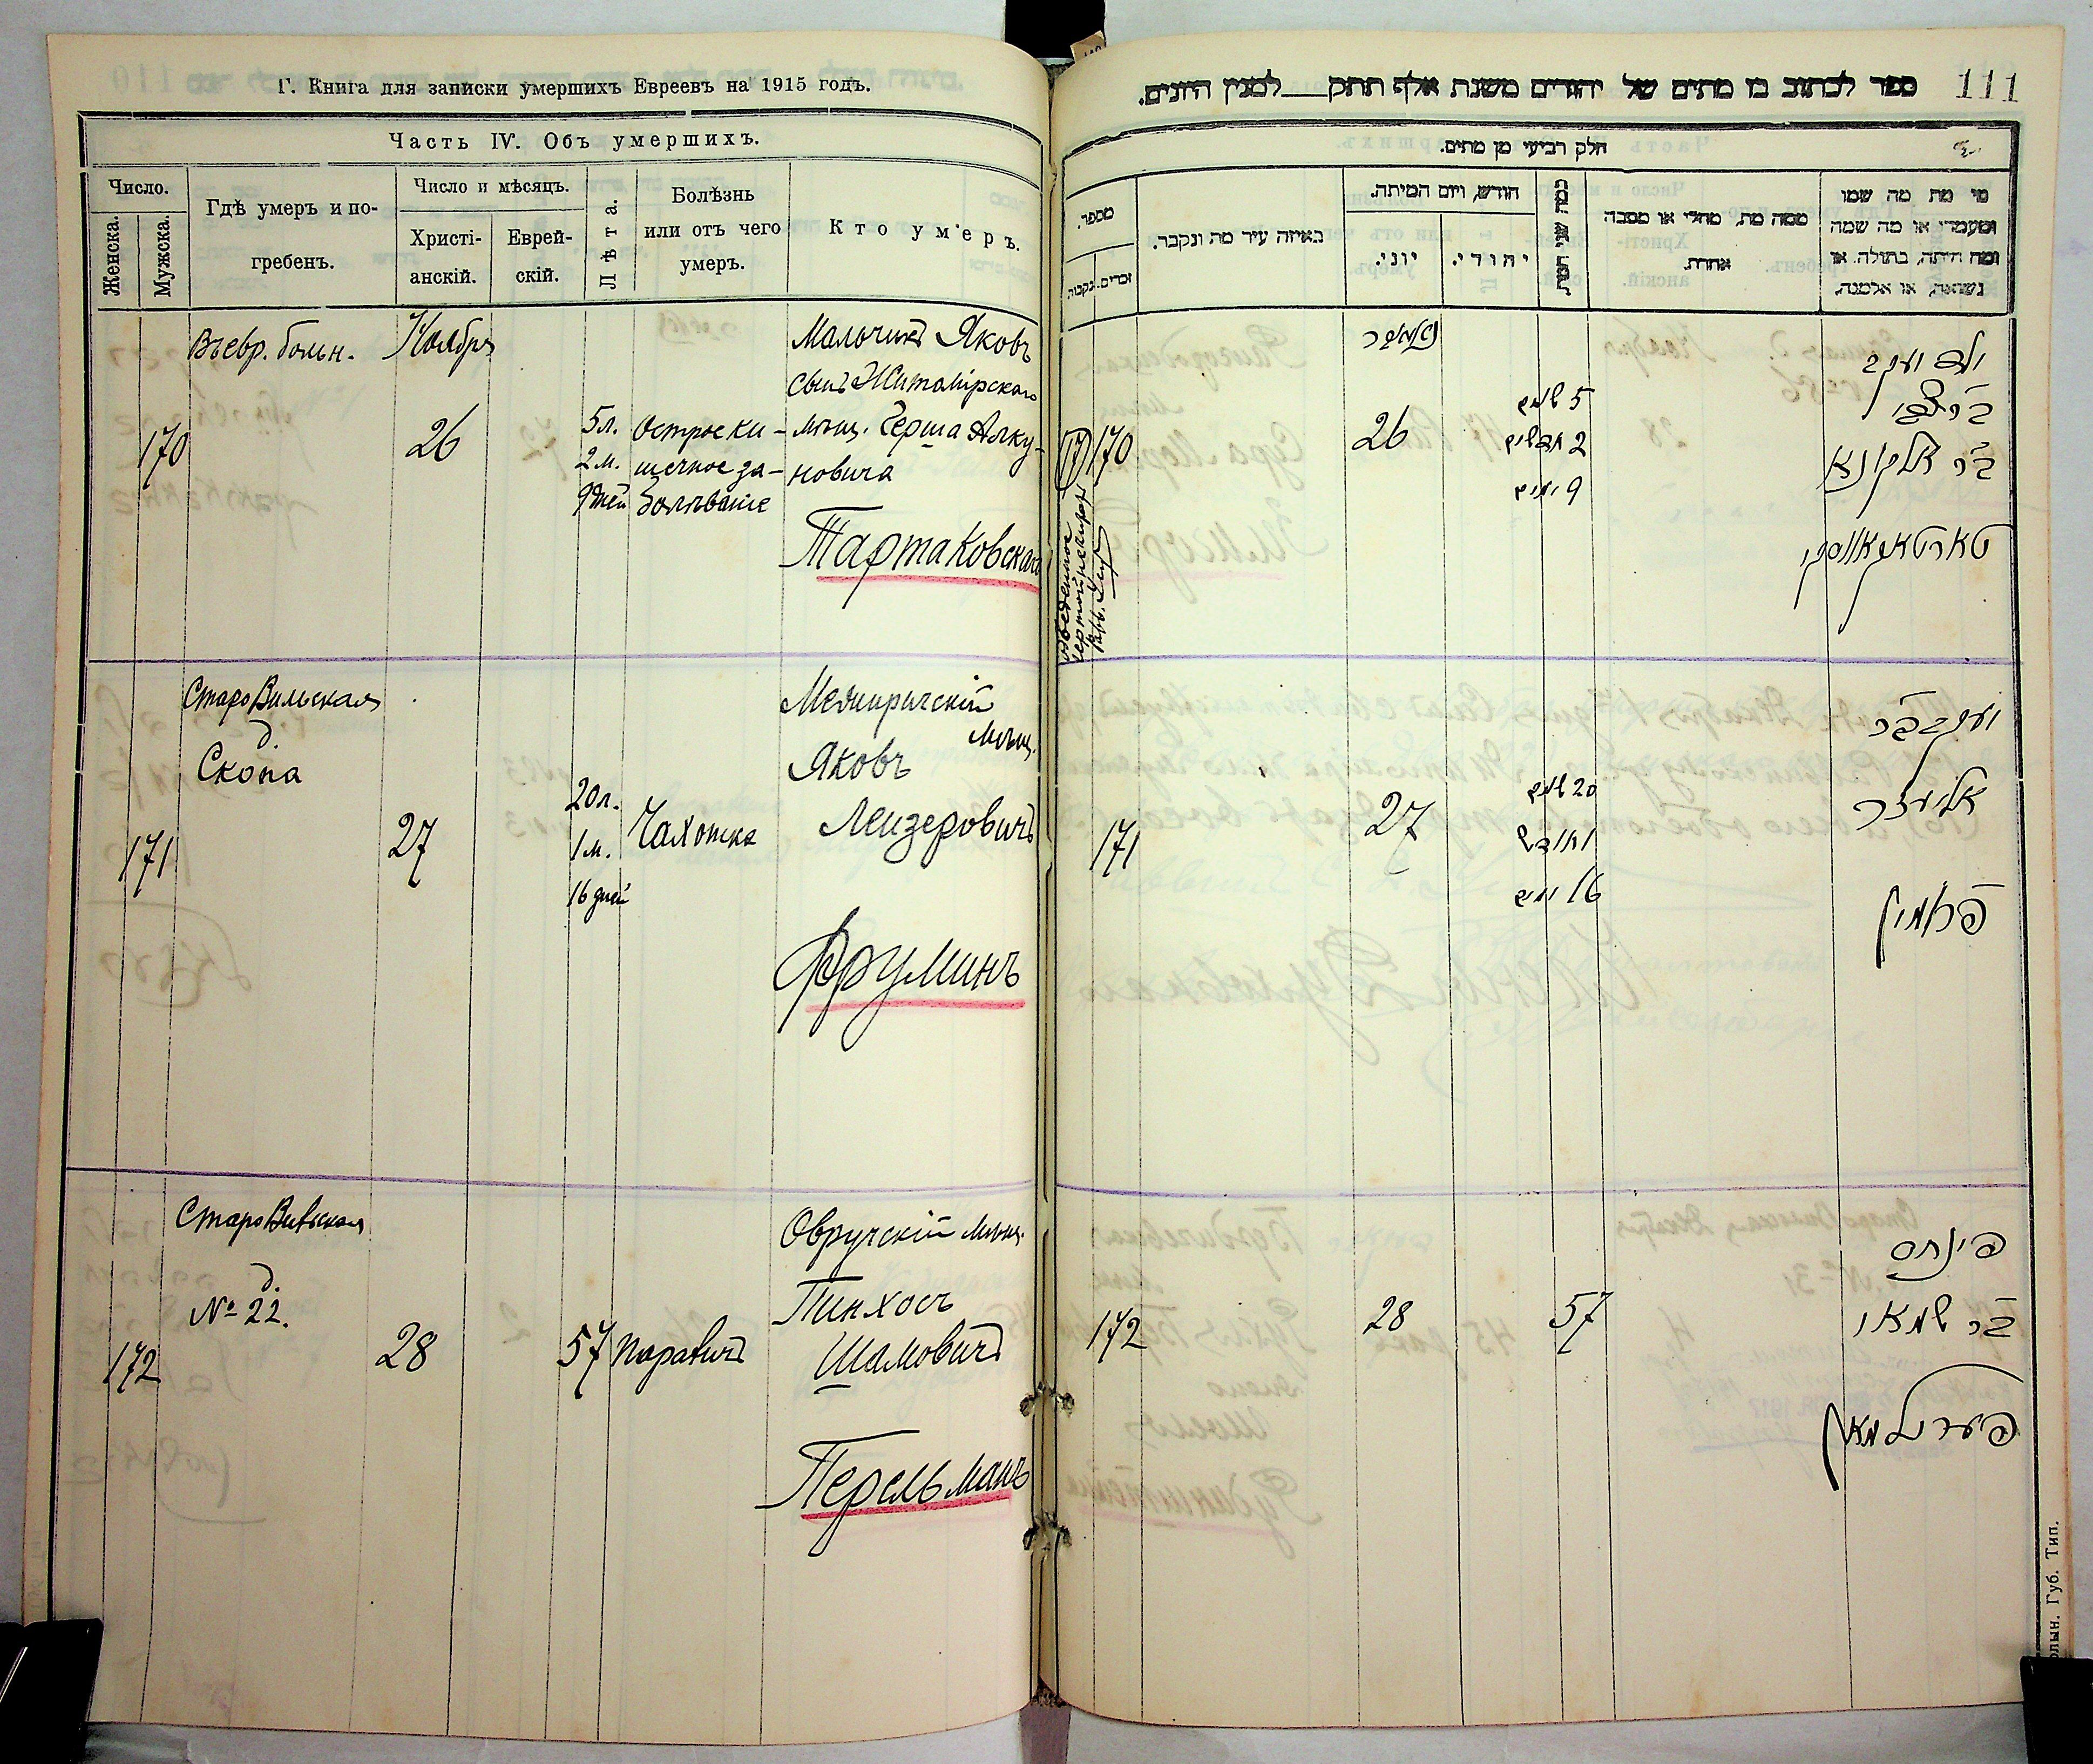 Г. Книга для записки умершихъ Евреевъ на 1915 годъ.
Часть IV. Объ умершихъ.
Число.
Женска.
Мужска.
Гдѣ умеръ и по-
гребенъ.
Число и мѣсяцъ.
Христі-
анскій.
Еврей-
скій.
Лѣта.
Болѣзнь
или отъ чего
умеръ.
Кто умеръ.
170
Въ евр. больн.
Ноября
26
5 л.
2 м.
9 дней
Острое ки-
шечное за-
болѣваніе
Мальчикъ Яковъ
сынъ Житомірскаго
мѣщ. Герша Алку-
новича
Тартаковскаго
171
Старо Вильская
д.
Скопа
27
20 л.
1 м.
16 дней
Чахотка
мѣщ.
Яковъ
Лейзеровичъ
Фруминъ
172
Старо Вильская
д.
№ 22.
28
57
Параличъ
Овручскій мѣщ.
Пинхосъ
Шамовичъ
Перельманъ
111
ספר לכתוב בו מתים של יהודים משנת אלף תתק___למנין היונים.
חלק רביעי מן מתים.
מספר.
זכרים.
נקבות
באיזה עיר מת ונקבר.
חודש, ויום המיתה.
יוני.
יהודי.
כמה שני חייו
ממה מת, מחלי או מסבה
אחרת.
מי מת מה שמו
ומעמדו או מה שמה
ומה היתה, בתולה. או
נשואה, או אלמנה,
170
26
5 שנים
2 חדשים
9 ימים
ילד יעקב
בר אלקונא
טארטאקאווסקי
171
27
20 שנים
וחודש
16 ימים
יעקב בר
אליעזר
פרומין
172
28
57
פינחס
בר שמאי
פערעלמאן
Губ. Тип.